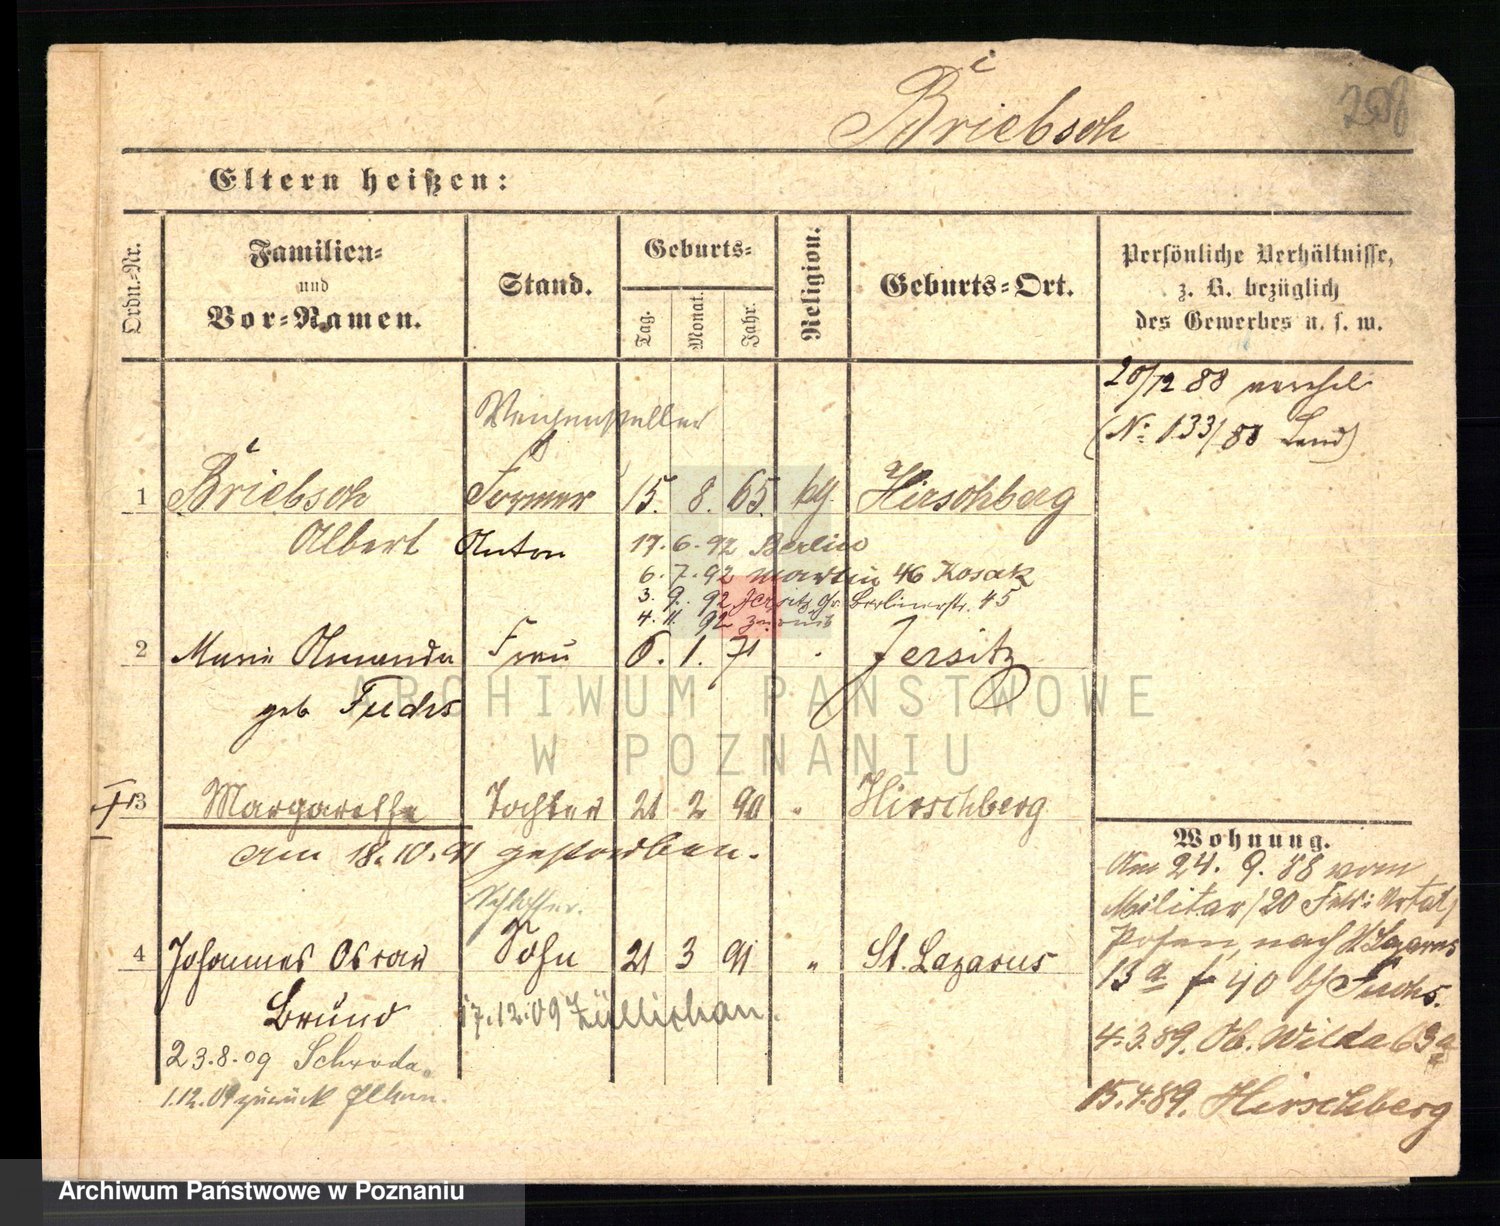 Briebsch
Eltern heißen:
Ordn.-Nr.
Familien-
und
Vor-Namen.
Stand.
Geburts-
Tag.
Monat.
Jahr.
Religion.
Geburts-Ort.
Persönliche Verhältnisse,
z. B. bezüglich
des Gewerbes u. s. w.
20/12 88
(No 133/88 Land)
Weichensteller
1 Briebsch Former 15. 8. 65. kth. Hirschberg
Albert Anton
6.92 Berlin
6.7.92 Martin 46 Kosak
3. 9. 92 Jersitz Gr. Berlinerstr. 45
4. 11. 92 zurück
2 Marie Amanda Frau 6. 1. 71 Jersitz
geb Fuchs
3 Margarethe Tochter 21 2 90 Hirschberg
am 18.10.91 gestorben.
Schlosser.
4 Johannes Oskar Sohn 21 3 91 " St. Lazarus
Bruno 17.12.09 Züllichau.
23.8.09 Schroda.
1.12.09 zurück Eltern.
Wohnung.
Am 24. 9. 88 vom
Militär /20 Feld: Artal/
Posen, nach St Lazarus
13a 40 b/ Fuchs.
4.3.89. Ob. Wilda 63a
15.4.89. Hirschberg
ARCHIWUM PAŃSTWOWE
W POZNANIU
Archiwum Państwowe w Poznaniu